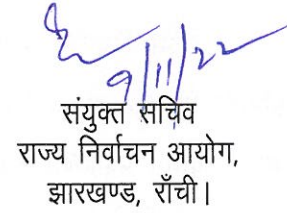 9/11/22
संयुक्त सचिव
राज्य निर्वाचन आयोग,
झारखण्ड, राँची।